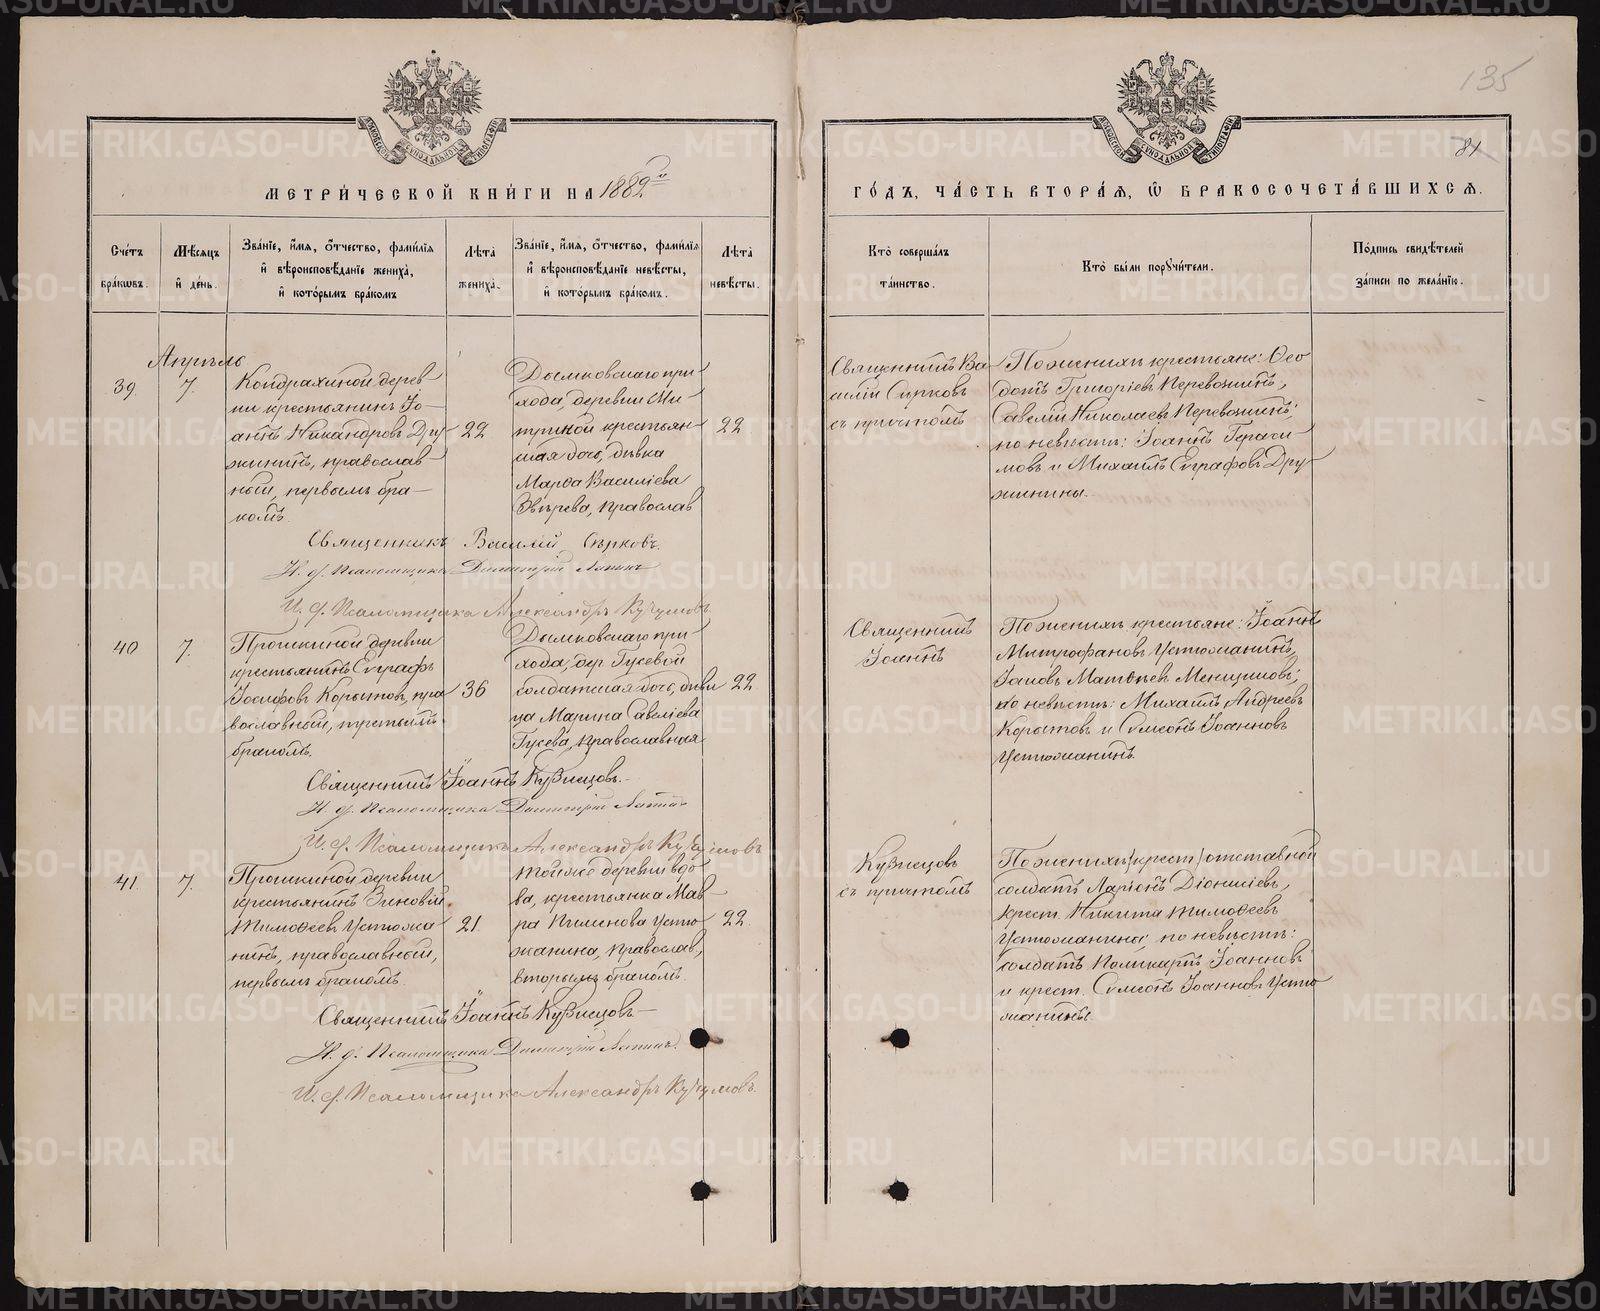 135
81
МЕТРИ́ЧЕСКОЙ КНИ́ГИ НА 1889 й
ГО́ДЪ, ЧА́СТЬ ВТОРА́Я, Ѡ БРАКОСОЧЕТА́ВШИХСЯ.
Сче́тъ бра́кѡвъ.
Мѣ́сяцъ и҆ де́нь.
Зва́нїе, и҆́мя, ѻ҆́тчество, фами́лїя
и҆ вѣроисповѣ́данїе жениха̀,
и҆ кото́рымъ бра́комъ
Лѣта̀ жениха̀.
Зва́нїе, и҆́мя, ѻ҆́тчество, фами́лїя
и҆ вѣроисповѣ́данїе невѣ́сты,
и҆ кото́рымъ бра́комъ.
Лѣта̀ невѣ́сты.
Кто̀ соверша́лъ
та́инство.
Кто̀ бы́ли порꙋчи́тели.
По́дпись свидѣ́телей
за́писи по жела́нїю.
Апрѣль
39.
7.
Кондрахиной дерев-
ни крестьянинъ Іо-
аннъ Никандровъ Дру-
жининъ, православ-
ный, первымъ бра-
комъ
22
Дымковскаго при-
хода, деревни Ми-
триной крестьян-
ская дочь, дѣвка
Марѳа Василіева
Звѣрева, православ
22
Священникъ Ва-
силій Сѣрковъ
съ причтомъ
По женихѣ крестьяне: Ѳео
дотъ Григоріевъ Перевозинъ,
Савелій Николаевъ Перевозинъ;
по невѣстѣ: Іоаннъ Гераси-
мовъ и Михаилъ Евграфовъ Дру-
жинины.
Священникъ Василій Сѣрковъ.
И. д. Псаломщика Димитрій Лапинъ
И. д. Псаломщика Александръ Кучумовъ
40
7.
Прошкиной деревни
крестьянинъ Евграфъ
Іосифовъ Корытовъ, пра
вославный, третьимъ
бракомъ.
36
Дымковскаго при-
хода, дер Гусевой
солдатская дочь, дѣви
ца Марина Савеліева
Гусева, православная
22
Священникъ
Іоаннъ
По женихѣ крестьяне: Іоаннъ
Митрофановъ Устюжанинъ,
Іаковъ Матвѣевъ Менщиковъ;
по невѣстѣ: Михаилъ Андреевъ
Корытовъ и Симеонъ Іоанновъ
Устюжанинъ.
Священникъ Іоаннъ Кузнецовъ.-
И. д. Псаломщика Димитрій Лапинъ
И. д. Псаломщика Александръ Кучумовъ
41.
7.
Прошкиной деревни
крестьянинъ Зиновій
Тимоѳеевъ Устюжа
нинъ, православный,
первымъ бракомъ.
21.
той же деревни вдо
ва, крестьянка Мав-
ра Пименова Устю-
жанина, православ,
вторымъ бракомъ.
22
Кузнецовъ
съ причтомъ
По женихѣ (крест) отставной
солдатъ Ларіонъ Діонисіевъ,
крест. Никита Тимоѳеевъ
Устюжанины; по невѣстѣ:
солдатъ Поликарпъ Іоанновъ
и крест. Симеонъ Іоанновъ Устю
жанины.
Священникъ Іоаннъ Кузнецовъ-
И. д. Псаломщика Димитрій Лапинъ.
И. д. Псаломщика Александръ Кучумовъ.
METRIKI.GASO-URAL.RU